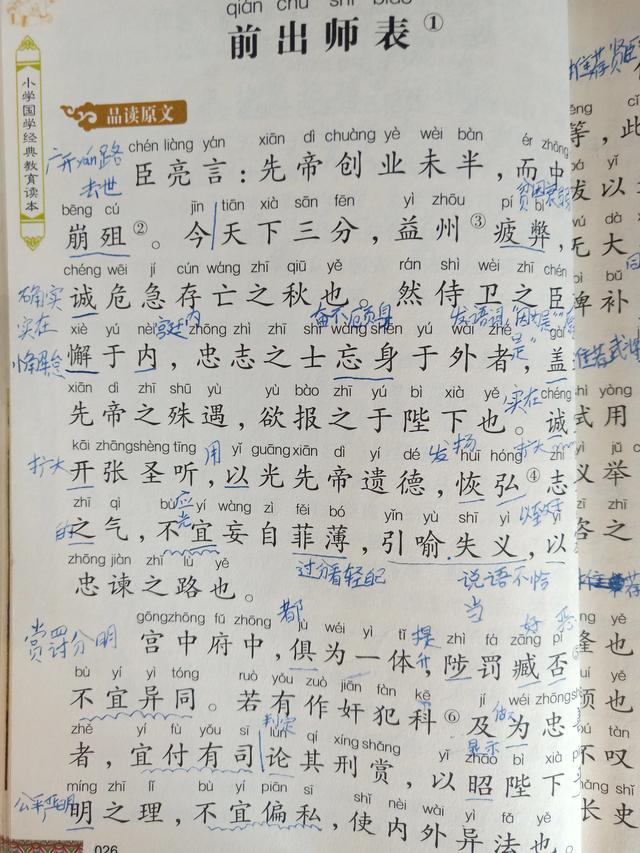 qián chū shī biǎo
前出师表①
小学国学经典教育读本
品读原文
chén liàng yán xiān dì chuàng yè wèi bàn ér zhōng
臣亮言：先帝创业未半，而中
广开yán路
去世
贫困衰弱
bēng cú jīn tiān xià sān fēn yì zhōu pí bì
崩殂②。今天下三分，益州③疲弊，
chéng wēi jí cún wáng zhī qiū yě rán shì wèi zhī chén
诚危急存亡之秋也。然侍卫之臣
确实
实在
宫廷内
奋不顾身
xiè yú nèi zhōng zhì zhī shì wàng shēn yú wài zhě gài
懈于内，忠志之士忘身于外者，盖
xiān dì zhī shū yù yù bào zhī yú bì xià yě chéng
先帝之殊遇，欲报之于陛下也。诚
实在
扩大
用
发扬
扩大
kāi zhāng shèng tīng yǐ guāng xiān dì yí dé huī hóng zhì
开张圣听，以光先帝遗德，恢弘④志
的
应
以至于
zhī qì bù yí wàng zì fěi bó yǐn yù shī yì yǐ
之气，不宜妄自菲薄，引喻失义，以
过分看轻自己
说语不恰
当
zhōng jiàn zhī lù yě
忠谏之路也。
赏罚分明
都
提
升
好
gōng zhōng fǔ zhōng jù wéi yì tǐ zhì fá zāng pǐ
宫中府中，俱为一体，陟罚臧否
bù yí yì tóng ruò yǒu zuò jiān fàn kē jí wéi zhōng
不宜异同。若有作奸犯科⑥及为忠
判定
做
显示
zhě yí fù yǒu sī lùn qí xíng shǎng yǐ zhāo bì xià
者，宜付有司论其刑赏，以昭陛下
公平严明
míng zhī lǐ bù yí piān sī shǐ nèi wài yì fǎ yě
明之理，不宜偏私，使内外异法也。
026
推荐贤臣
等，此
发以
无大
bì bǔ
裨补
shì yòng
试用
义举
咨之
推荐
隆也
颓也
bù tàn
不叹
zhǎng shǐ
长史